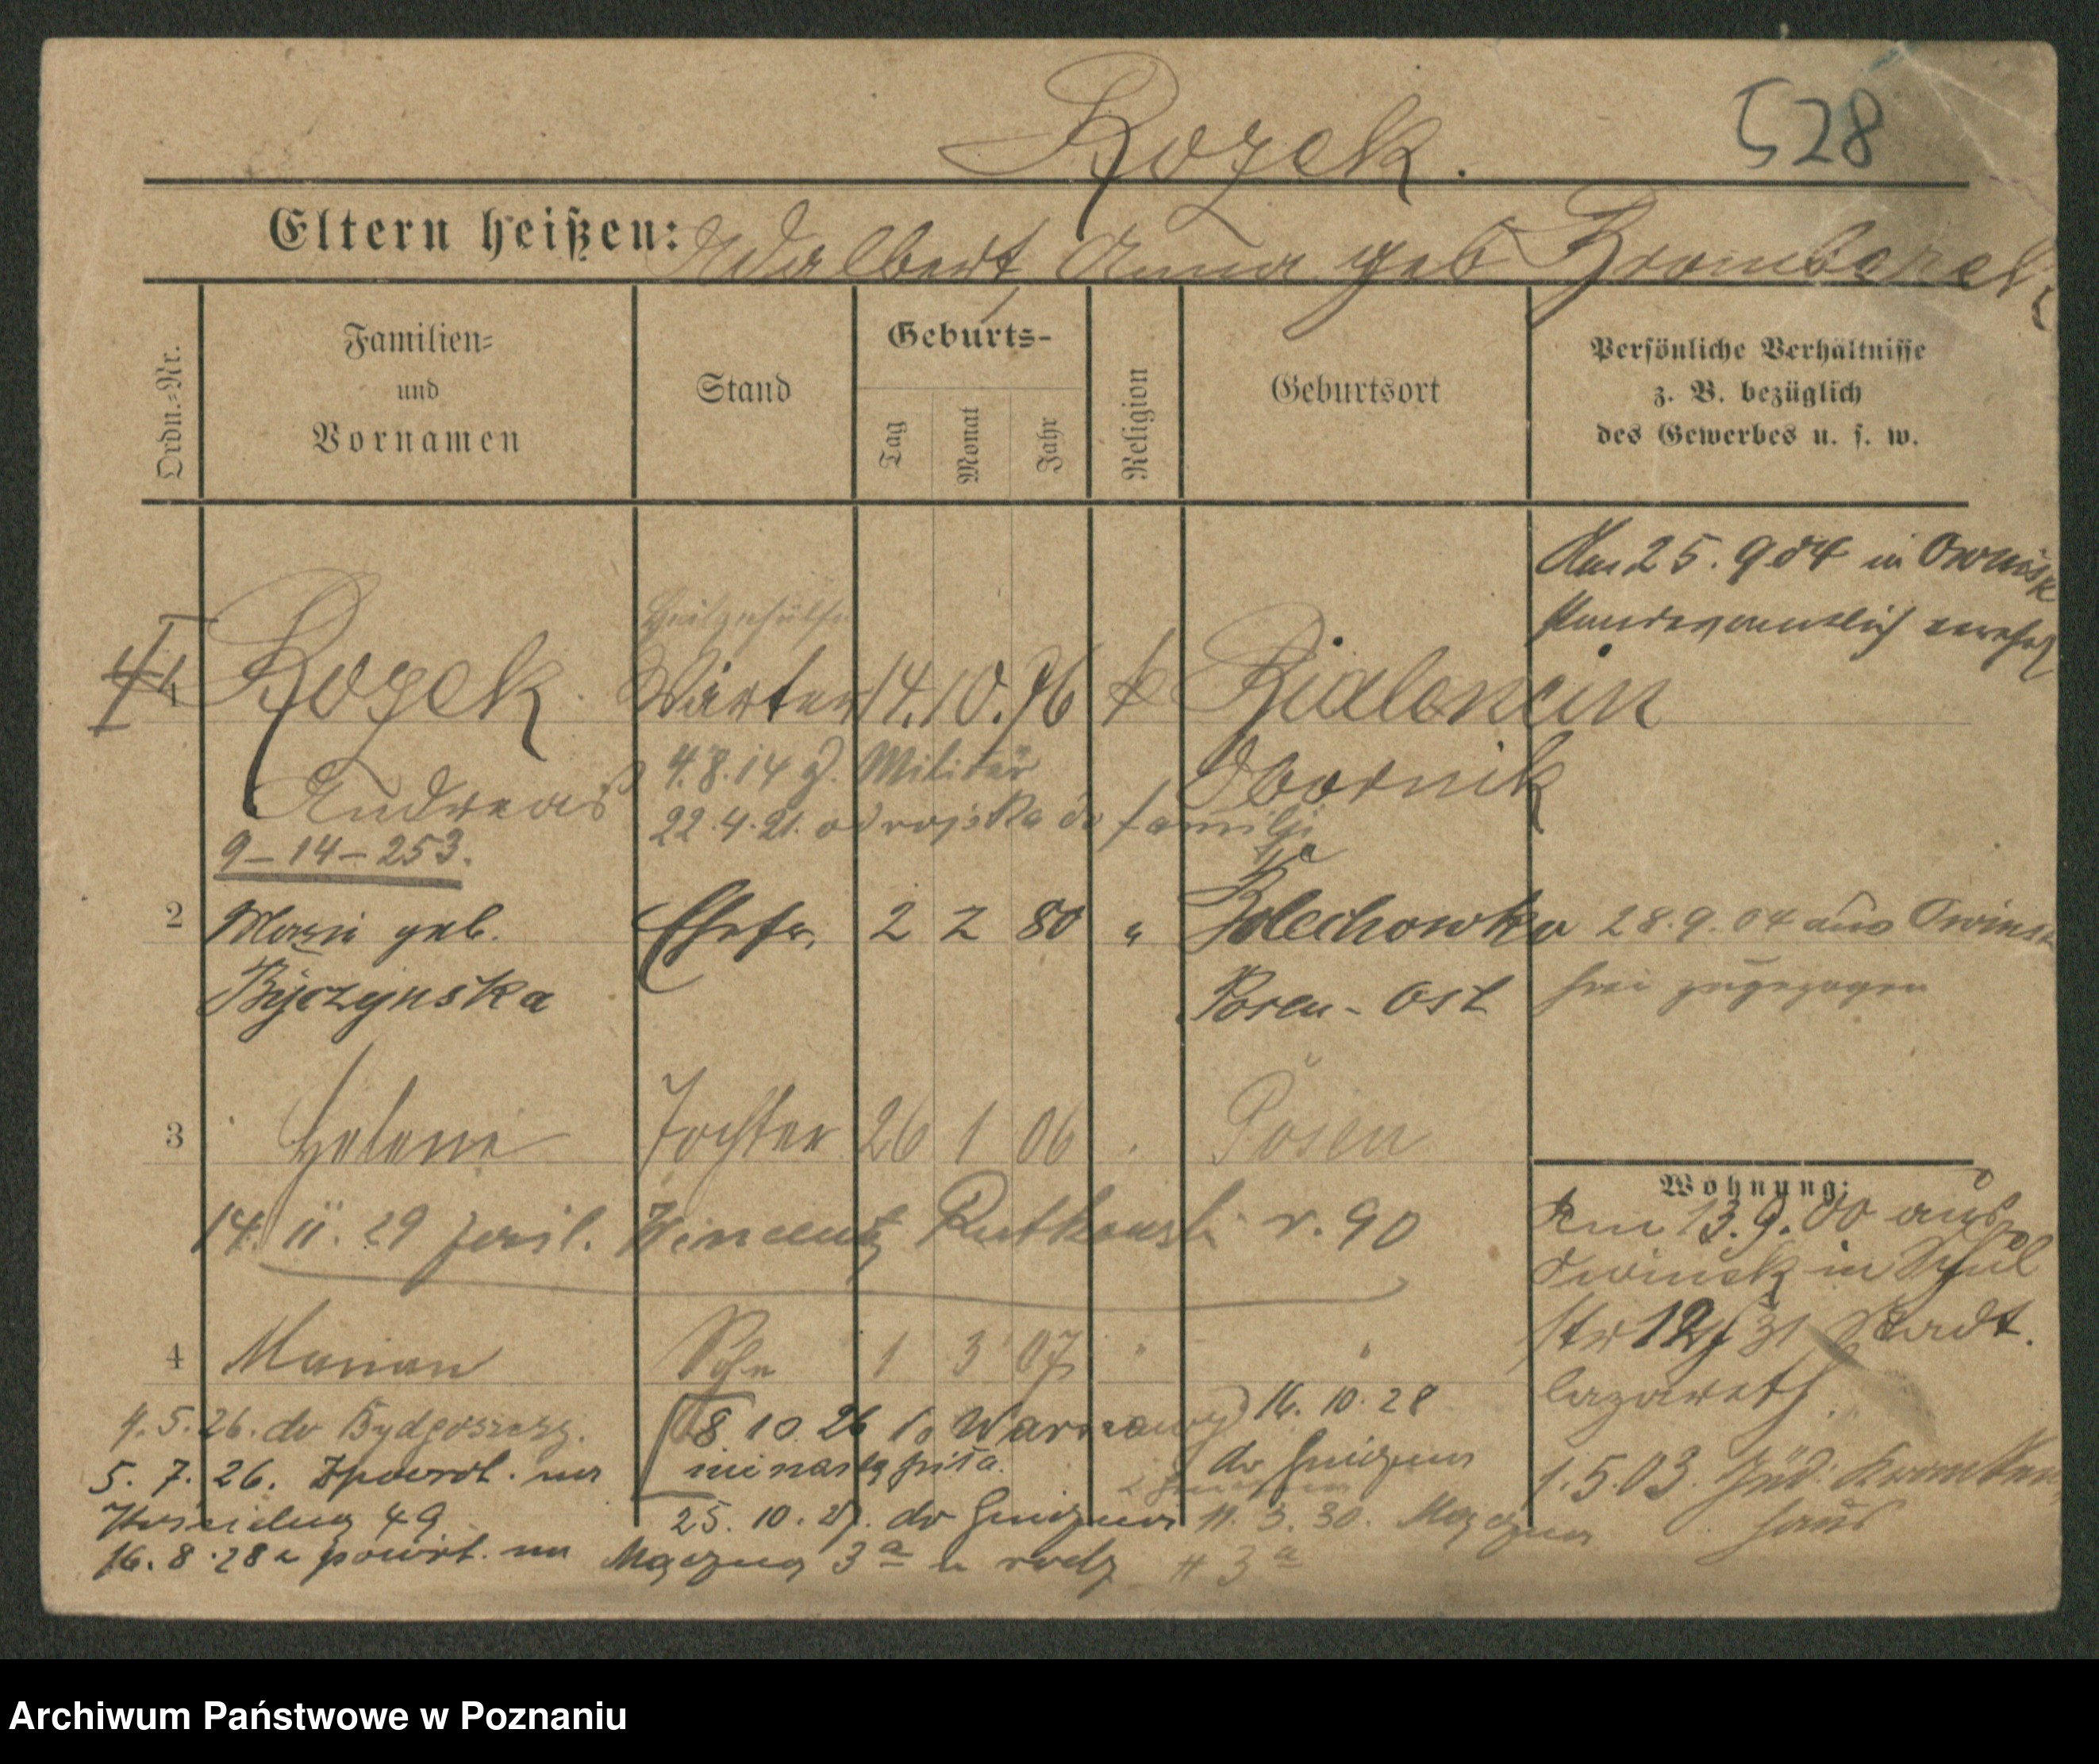 Rozek.
528
Eltern heißen: Adalbert, Anna geb
Ordn.-Nr.
Familien=
und
Vornamen
Stand
Geburts-
Tag
Monat
Jahr
Religion
Geburtsort
Persönliche Verhältnisse
z. B. bezüglich
des Gewerbes u. s. w.
Am 25. 9 04 in Owinsk
standesamtlich
Heilgehülfe
1 Rozek Wärter 14. 10. 76 k Bialenzin
4.8.14 z. Militär Obornik
Andreas
22.4.21. od wojska do familji
9-14-253.
2 Marie geb. Ehefr. 2 2 80 " Bolechowko 28.9.04 aus Owinsk
Byczynska Posen-Ost frei zugezogen
3 Helene Tochter 26 1 06 " Posen
Wohnung:
14. 11. 29 Wincenty Rutkowski r. 90
Am 13.9.00 aus
Owinsk in Schul
str 12 Stadt.
lazareth.
4 Marian Sohn 1 3 07 " "
4.5.26. do Bydgoszczy.
8 10 26 Warszawy
16. 10. 28
do
5. 7. 26. zpowrot. na
49
25. 10. 27. do
11. 3. 30.
1.5.03. Jüd. Kranken
haus
16. 8. 28 z powrt. na 3a u rodz
3a
Archiwum Państwowe w Poznaniu